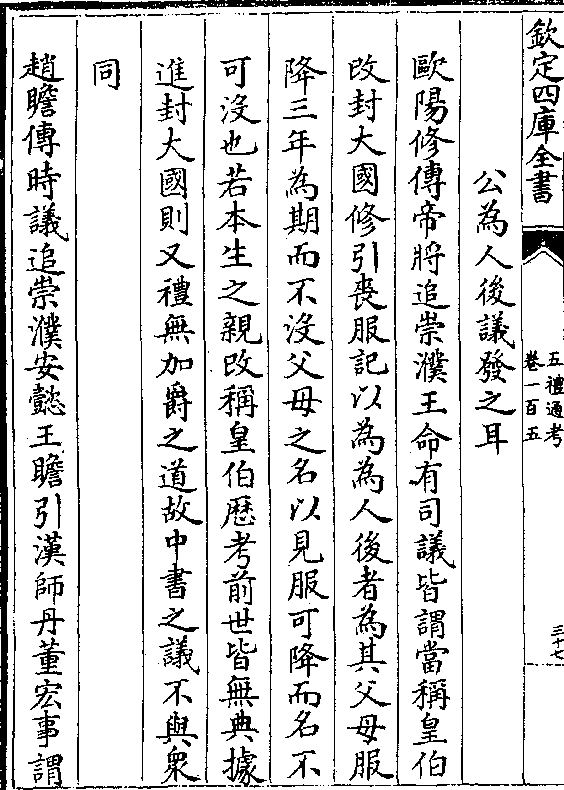 欽定四庫全書
五禮通考
卷一百五
三十七
公為人後議發之耳
歐陽修傳帝將追崇濮王命有司議皆謂當稱皇伯
改封大國修引喪服記以為為人後者為其父母服
降三年為期而不沒父母之名以見服可降而名不
可沒也若本生之親改稱皇伯歴考前世皆無典據
進封大國則又禮無加爵之道故中書之議不與衆
同
趙瞻傳時議追崇濮安懿王瞻引漢師丹董宏事謂